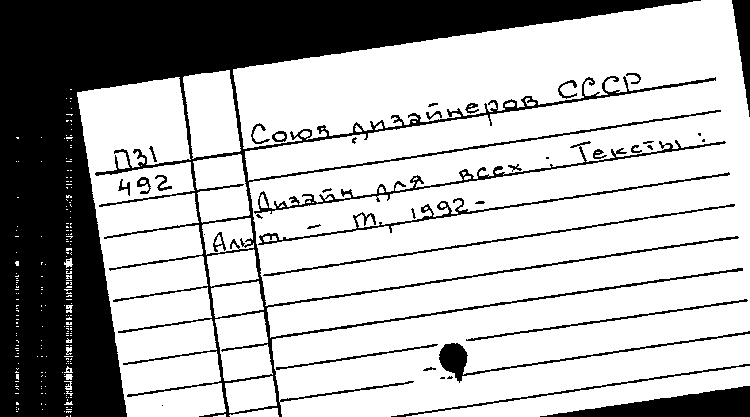 Союз дизайнеров СССР
П31
492
Дизайн для всех : Тексты :
Альт. - М., 1992-